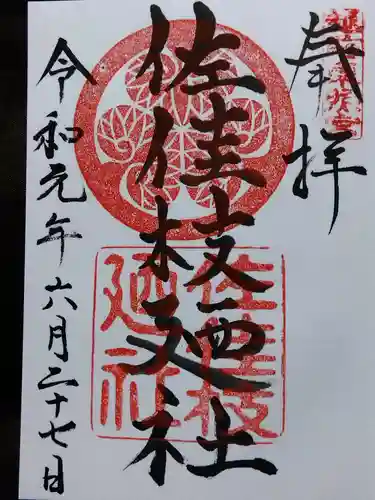 奉拝
佐佳枝廼社
佐佳枝
廼社
令和元年六月二十七日